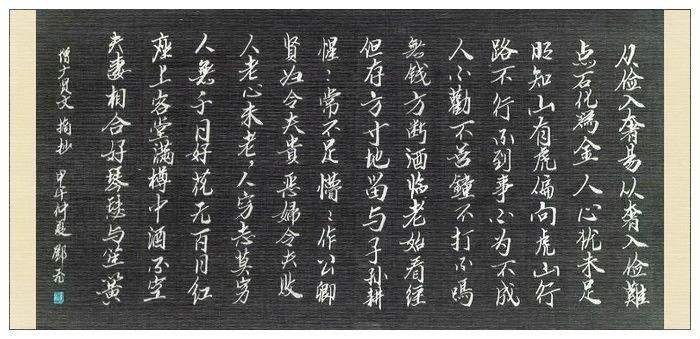 从俭入奢易从奢入俭難
点石化為金人心犹未足
明知山有虎偏向虎山行
路不行不到事不为不成
人不勸不善鐘不打不鳴
無钱方断酒临老始看经
但存方寸地留与子孙耕
惺々常不足懵々作公卿
賢妇令夫貴恶婦令夫败
人老心未老,人穷志莫穷
人無千日好花无百日红
座上客常满樽中酒不空
夫妻相合好琴瑟与笙簧
增广贤文摘抄 甲午仲夏 邓